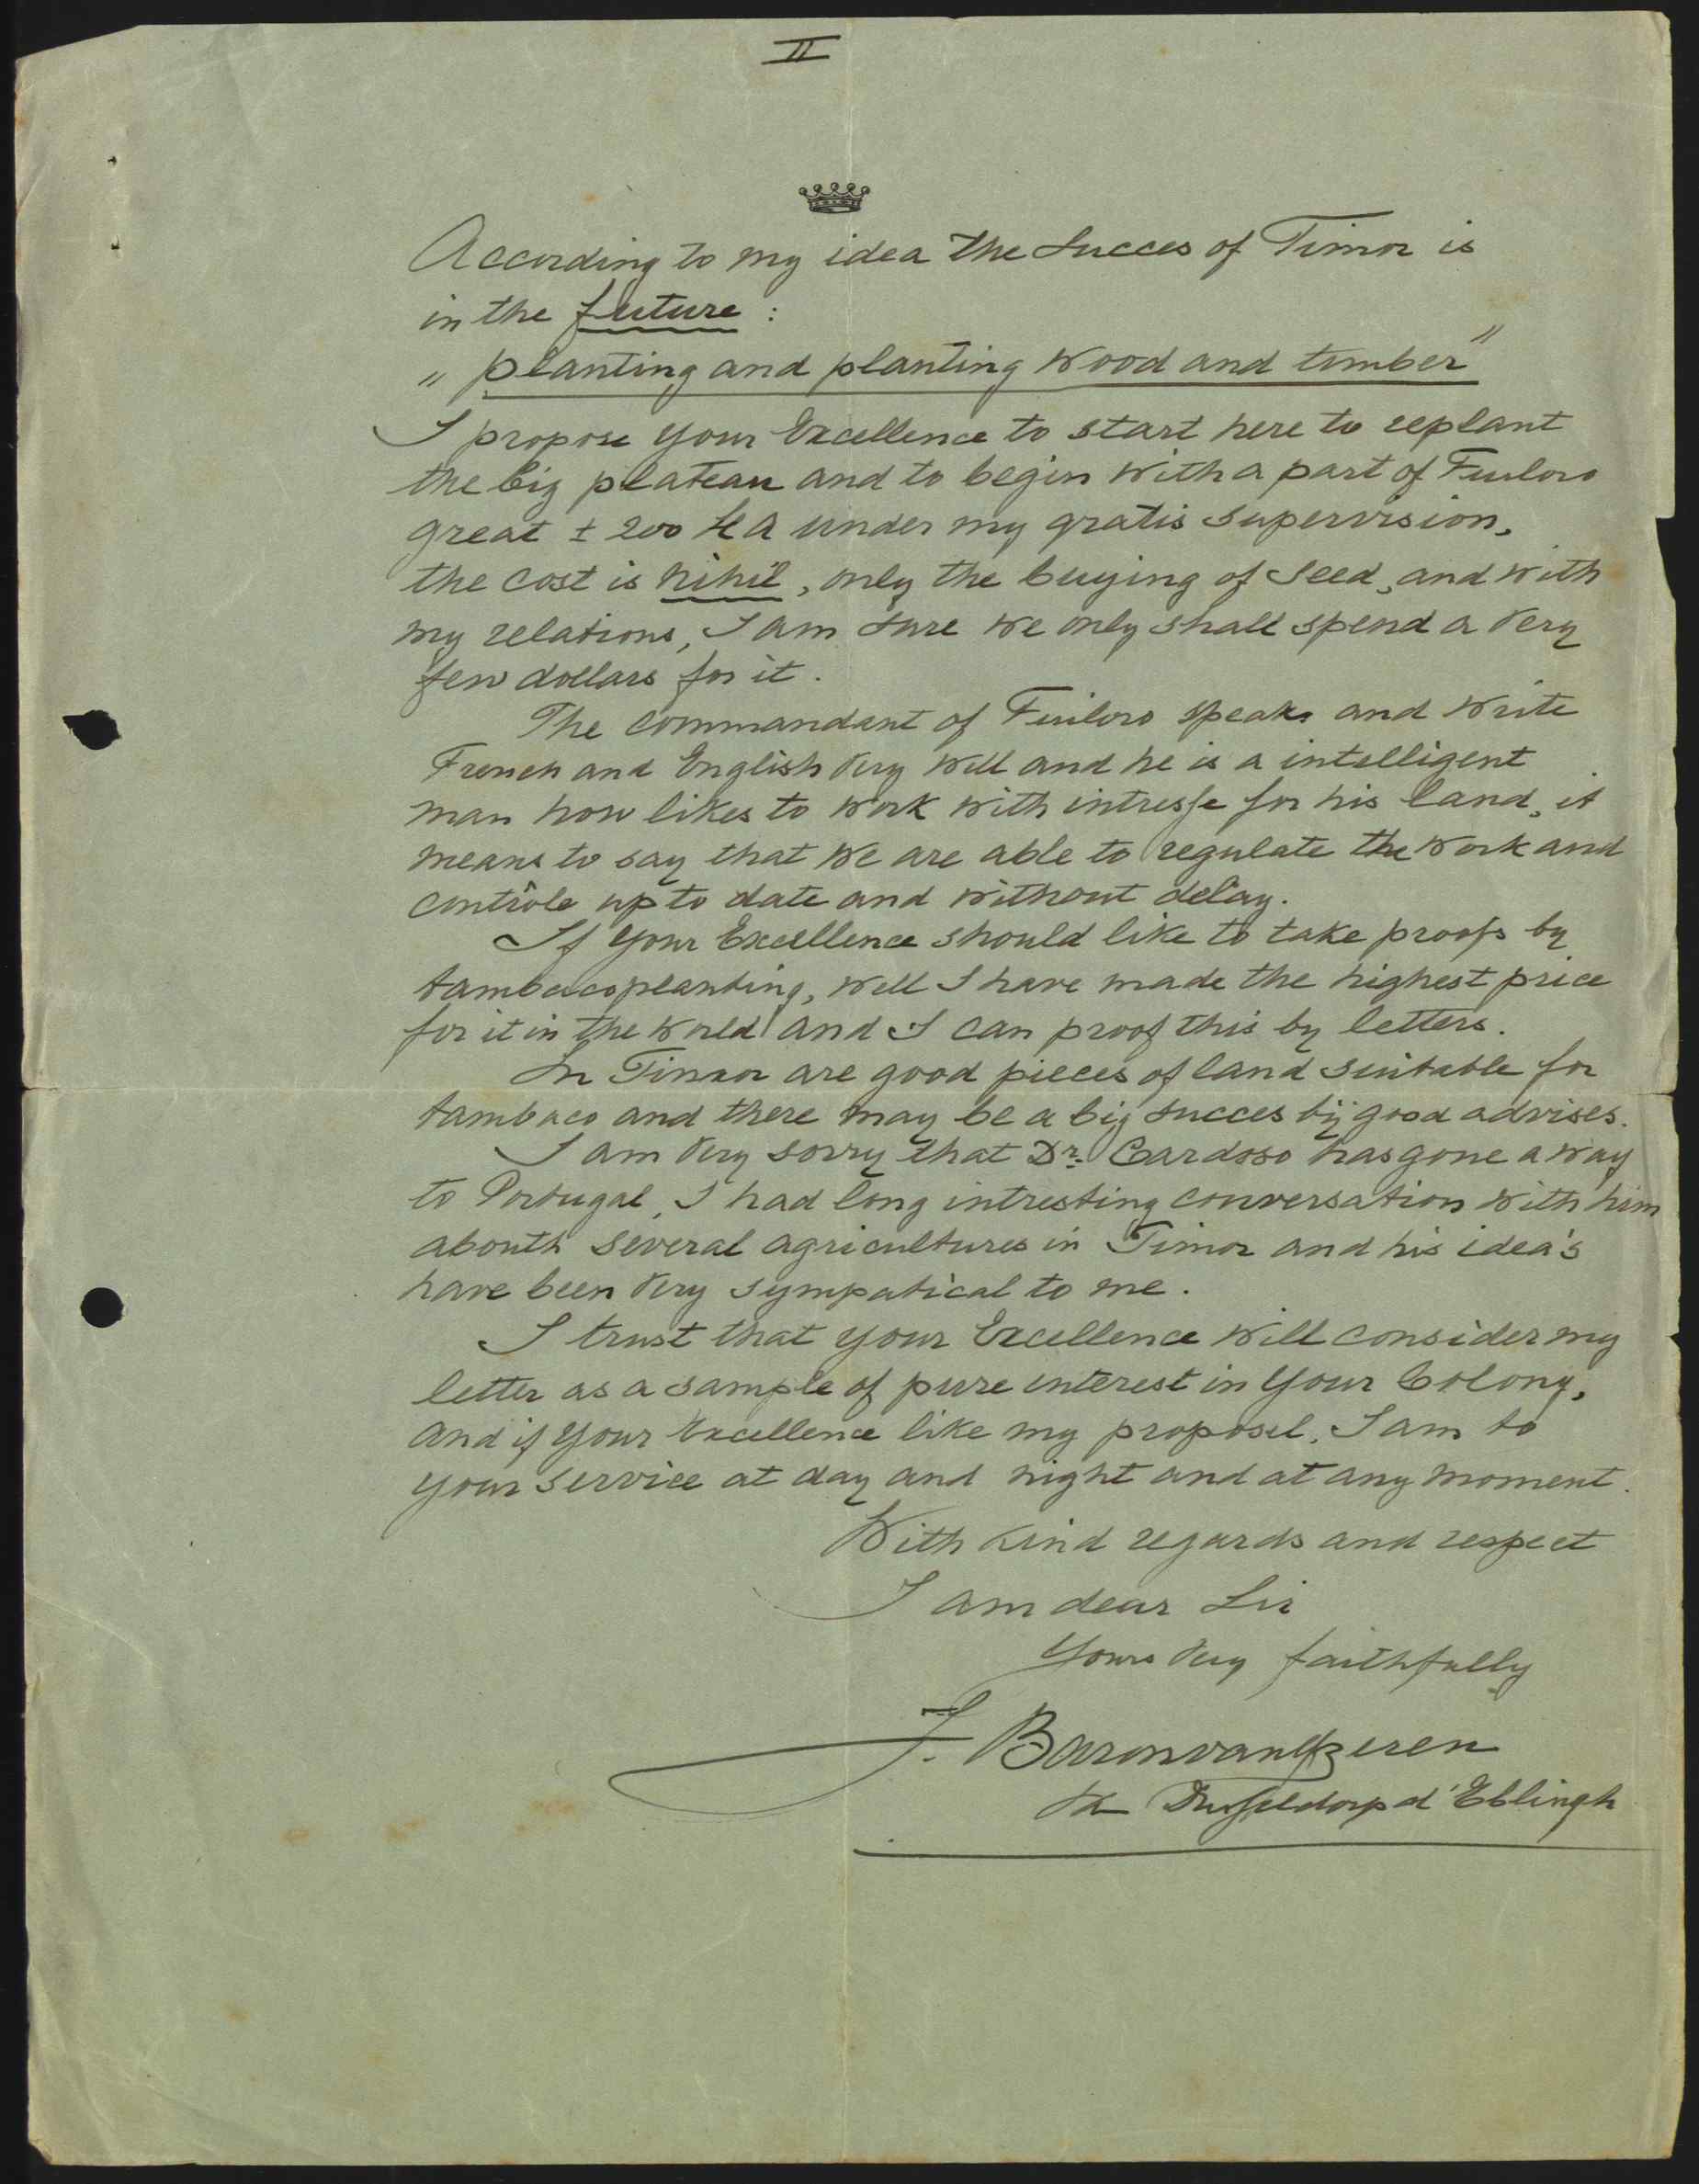 II
According to my idea the succes of Timor is
in the future :
„ planting and planting wood and timber"
I propose your Excellence to start here to replant
the big plateau and to begin with a part of Fuiloro
great ± 200 HA under my gratis supervision,
the cost is nihil, only the buying of seed, and with
my relations, I am sure we only shall spend a very
few dollars for it.
The commandant of Fuiloro speaks and write
French and English very well and he is a intelligent
man how likes to work with intresse for his land, it
means to say that we are able to regulate the work and
contrôle up to date and without delay.
If your Excellence should like to take proofs by
tambacoplanting, well I have made the highest price
for it in the world and I can proof this by letters.
In Timor are good pieces of land suitable for
tambaco and there may be a big succes bij good advises.
I am very sorry that Dr. Cardoso has gone a way
to Portugal, I had long intresting conversation with him
abouth several agricultures in Timor and his idea's
have been very sympatical to me.
I trust that your Excellence will consider my
letter as a sample of pure interest in your Colony,
and if your Excellence like my proposel, I am to
your service at day and night and at any moment.
With kind regards and respect
I am dear Sir
Yours very faithfully
F. Baron van
d'Eblingh